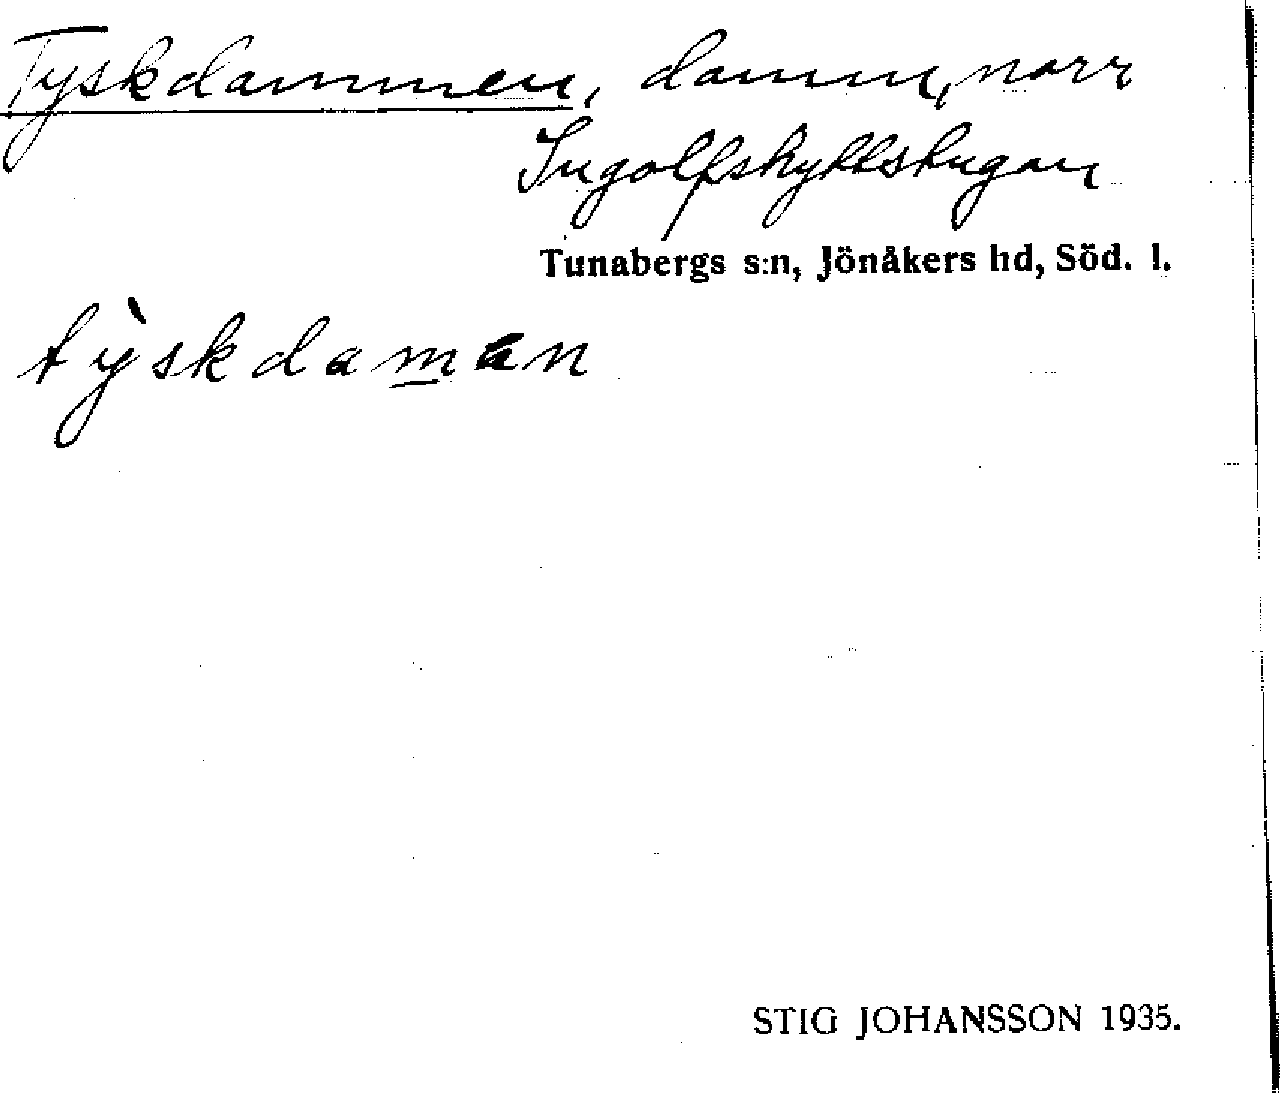 Tyskdammen, damm, norr
Ingolfshyttstugan
Tunabergs s:n, Jönåkers hd, Söd. l.
tỳskdamən
STIG JOHANSSON 1935.